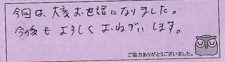 今回は、大変お世話になりました。
今後もよろしくおねがいします。
ご協力ありがとうございました。